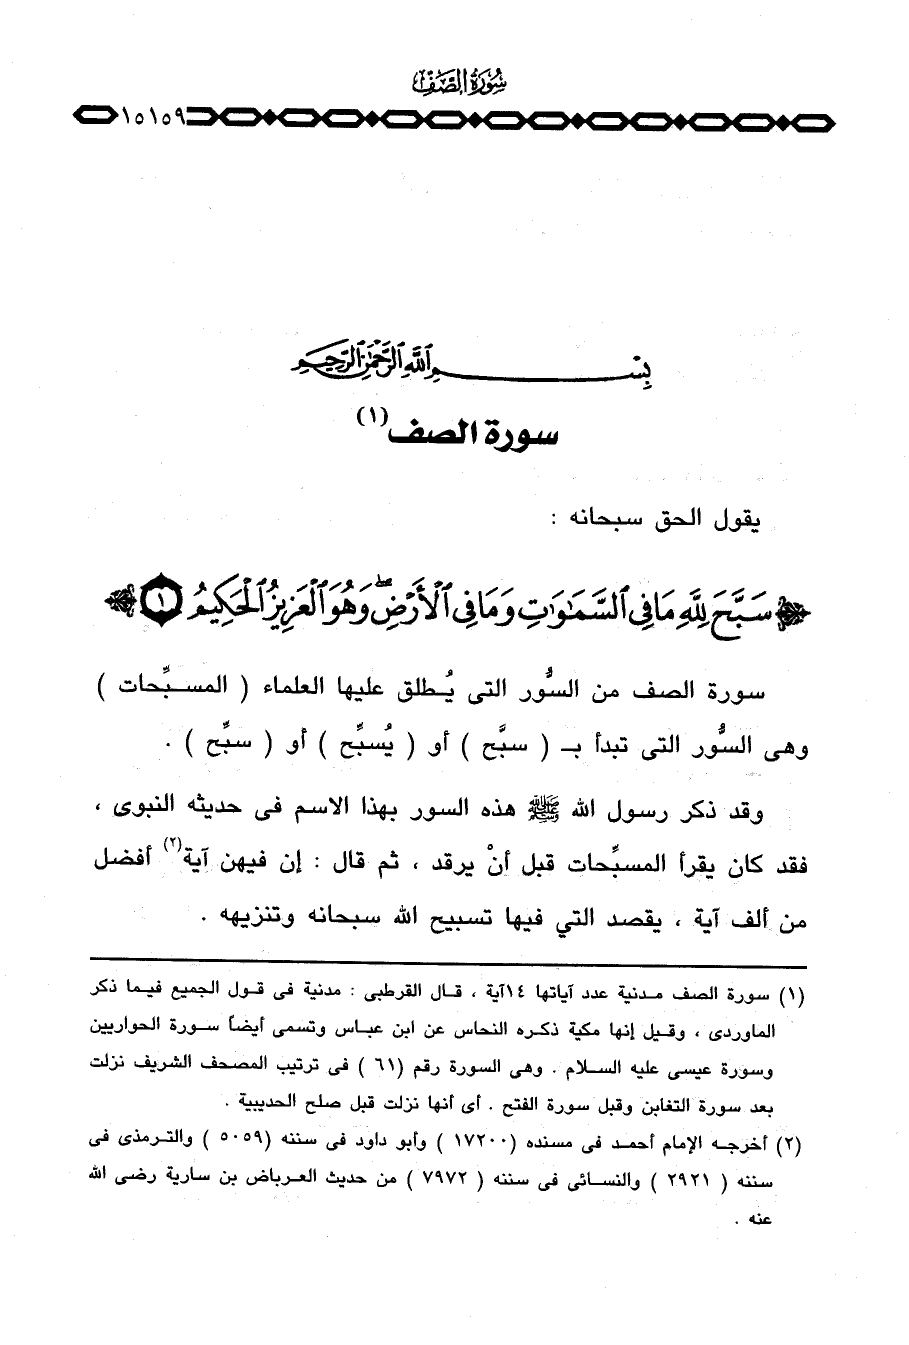 سُورَةُ الصَّفِّ
١٥١٥٩
بِسْمِ اللَّهِ الرَّحْمَٰنِ الرَّحِيمِ
سورة الصف(١)
يقول الحق سبحانه :
سَبَّحَ لِلَّهِ مَا فِي ٱلسَّمَٰوَٰتِ وَمَا فِي ٱلْأَرْضِۖ وَهُوَ ٱلْعَزِيزُ ٱلْحَكِيمُ ١
سورة الصف من السُّور التى يُطلق عليها العلماء ( المسبِّحات )
وهى السُّور التى تبدأ بـ ( سبَّح ) أو ( يُسبِّح ) أو ( سبِّح ) .
وقد ذكر رسول الله ﷺ هذه السور بهذا الاسم فى حديثه النبوى ،
فقد كان يقرأ المسبِّحات قبل أنْ يرقد ، ثم قال : إن فيهن آية(٢) أفضل
من ألف آية ، يقصد التي فيها تسبيح الله سبحانه وتنزيهه .
(١) سورة الصف مدنية عدد آياتها ١٤آية ، قال القرطبى : مدنية فى قول الجميع فيما ذكر
الماوردى ، وقيل إنها مكية ذكره النحاس عن ابن عباس وتسمى أيضاً سورة الحواريين
وسورة عيسى عليه السلام . وهى السورة رقم (٦١ ) فى ترتيب المصحف الشريف نزلت
بعد سورة التغابن وقبل سورة الفتح . أى أنها نزلت قبل صلح الحديبية .
(٢) أخرجه الإمام أحمد فى مسنده (١٧٢٠٠ ) وأبو داود فى سننه (٥٠٥٩ ) والترمذى فى
سننه ( ٢٩٢١ ) والنسائى فى سننه ( ٧٩٧٢ ) من حديث العرباض بن سارية رضى الله
عنه .